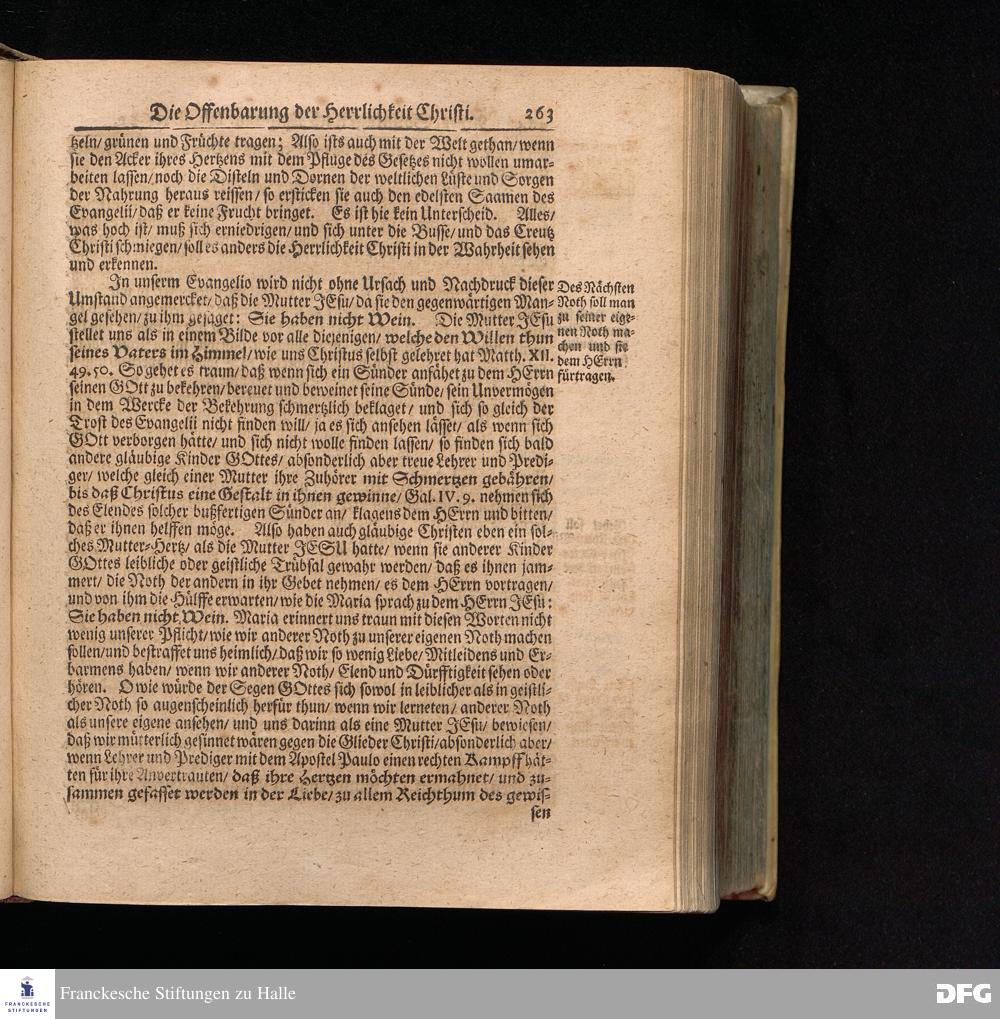 Die Offenbarung der Herrlichkeit Christi. 263
tzeln/ grünen und Früchte tragen; Also ists auch mit der Welt gethan/ wenn
sie den Acker ihres Hertzens mit dem Pfluge des Gesetzes nicht wollen umar-
beiten lassen/ noch die Disteln und Dornen der weltlichen Lüste und Sorgen
der Nahrung heraus reissen/ so ersticken sie auch den edelsten Saamen des
Evangelii/ daß er keine Frucht bringet. Es ist hie kein Unterscheid. Alles/
was hoch ist/ muß sich erniedrigen/ und sich unter die Busse/ und das Creutz
Christi schmiegen/ soll es anders die Herrlichkeit Christi in der Wahrheit sehen
und erkennen.
In unserm Evangelio wird nicht ohne Ursach und Nachdruck dieser
Umstand angemercket/ daß die Mutter JEsu/ da sie den gegenwärtigen Man-
gel gesehen/ zu ihm gesaget: Sie haben nicht Wein. Die Mutter JEsu
stellet uns als in einem Bilde vor alle diejenigen/ welche den Willen thun
seines Vaters im Himmel/ wie uns Christus selbst gelehret hat Matth. XII.
49. 50. So gehet es traun/ daß wenn sich ein Sünder anfähet zu dem HErrn
seinen GOtt zu bekehren/ bereuet und beweinet seine Sünde/ sein Unvermögen
in dem Wercke der Bekehrung schmertzlich beklaget/ und sich so gleich der
Trost des Evangelii nicht finden will/ ja es sich ansehen lässet/ als wenn sich
GOtt verborgen hätte/ und sich nicht wolle finden lassen/ so finden sich bald
andere gläubige Kinder GOttes/ absonderlich aber treue Lehrer und Predi-
ger/ welche gleich einer Mutter ihre Zuhörer mit Schmertzen gebähren/
bis daß Christus eine Gestalt in ihnen gewinne/ Gal. IV. 9. nehmen sich
des Elendes solcher bußfertigen Sünder an/ klagens dem HErrn und bitten/
daß er ihnen helffen möge. Also haben auch gläubige Christen eben ein sol-
ches Mutter-Hertz/ als die Mutter JESU hatte/ wenn sie anderer Kinder
GOttes leibliche oder geistliche Trübsal gewahr werden/ daß es ihnen jam-
mert/ die Noth der andern in ihr Gebet nehmen/ es dem HErrn vortragen/
und von ihm die Hülffe erwarten/ wie die Maria sprach zu dem HErrn JEsu:
Sie haben nicht Wein. Maria erinnert uns traun mit diesen Worten nicht
wenig unserer Pflicht/ wie wir anderer Noth zu unserer eigenen Noth machen
sollen/ und bestraffet uns heimlich/ daß wir so wenig Liebe/ Mitleidens und Er-
barmens haben/ wenn wir anderer Noth/ Elend und Dürfftigkeit sehen oder
hören. O wie würde der Segen GOttes sich sowol in leiblicher als in geistli-
cher Noth so augenscheinlich herfür thun/ wenn wir lerneten/ anderer Noth
als unsere eigene ansehen/ und uns darinn als eine Mutter JEsu/ bewiesen/
daß wir mütterlich gesinnet wären gegen die Glieder Christi/ absonderlich aber/
wenn Lehrer und Prediger mit dem Apostel Paulo einen rechten Kampff hät-
ten für ihre Anvertrauten/ daß ihre Hertzen möchten ermahnet/ und zu-
sammen gefasset werden in der Liebe/ zu allem Reichthum des gewis-
sen
Des Nächsten
Noth soll man
zu seiner eige-
nen Noth ma-
chen und sie
dem HErrn
fürtragen.
FRANCKESCHE
STIFTUNGEN
Franckesche Stiftungen zu Halle
DFG